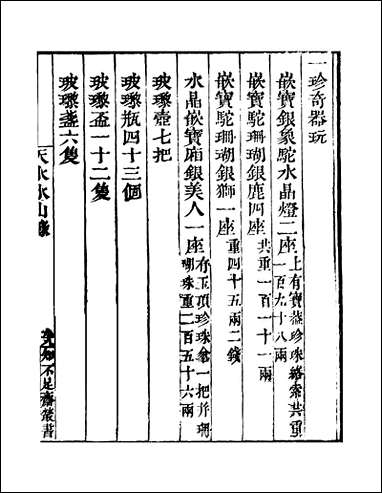 一珍奇器玩
嵌寶銀象駝水晶燈二座上有寶蓋珍珠絡索共重一百九十八兩
嵌寶駝珊瑚銀鹿四座共重一百一十一兩
嵌寶駝珊瑚銀獅一座重四十五兩二錢
水晶嵌寶廂銀美人一座有玉項珍珠傘一把并珊瑚珠重二百五十六兩
玻瓈壺七把
玻瓈瓶四十三個
玻瓈盃一十二隻
玻瓈盞六隻
天水冰山錄
知不足齋叢書